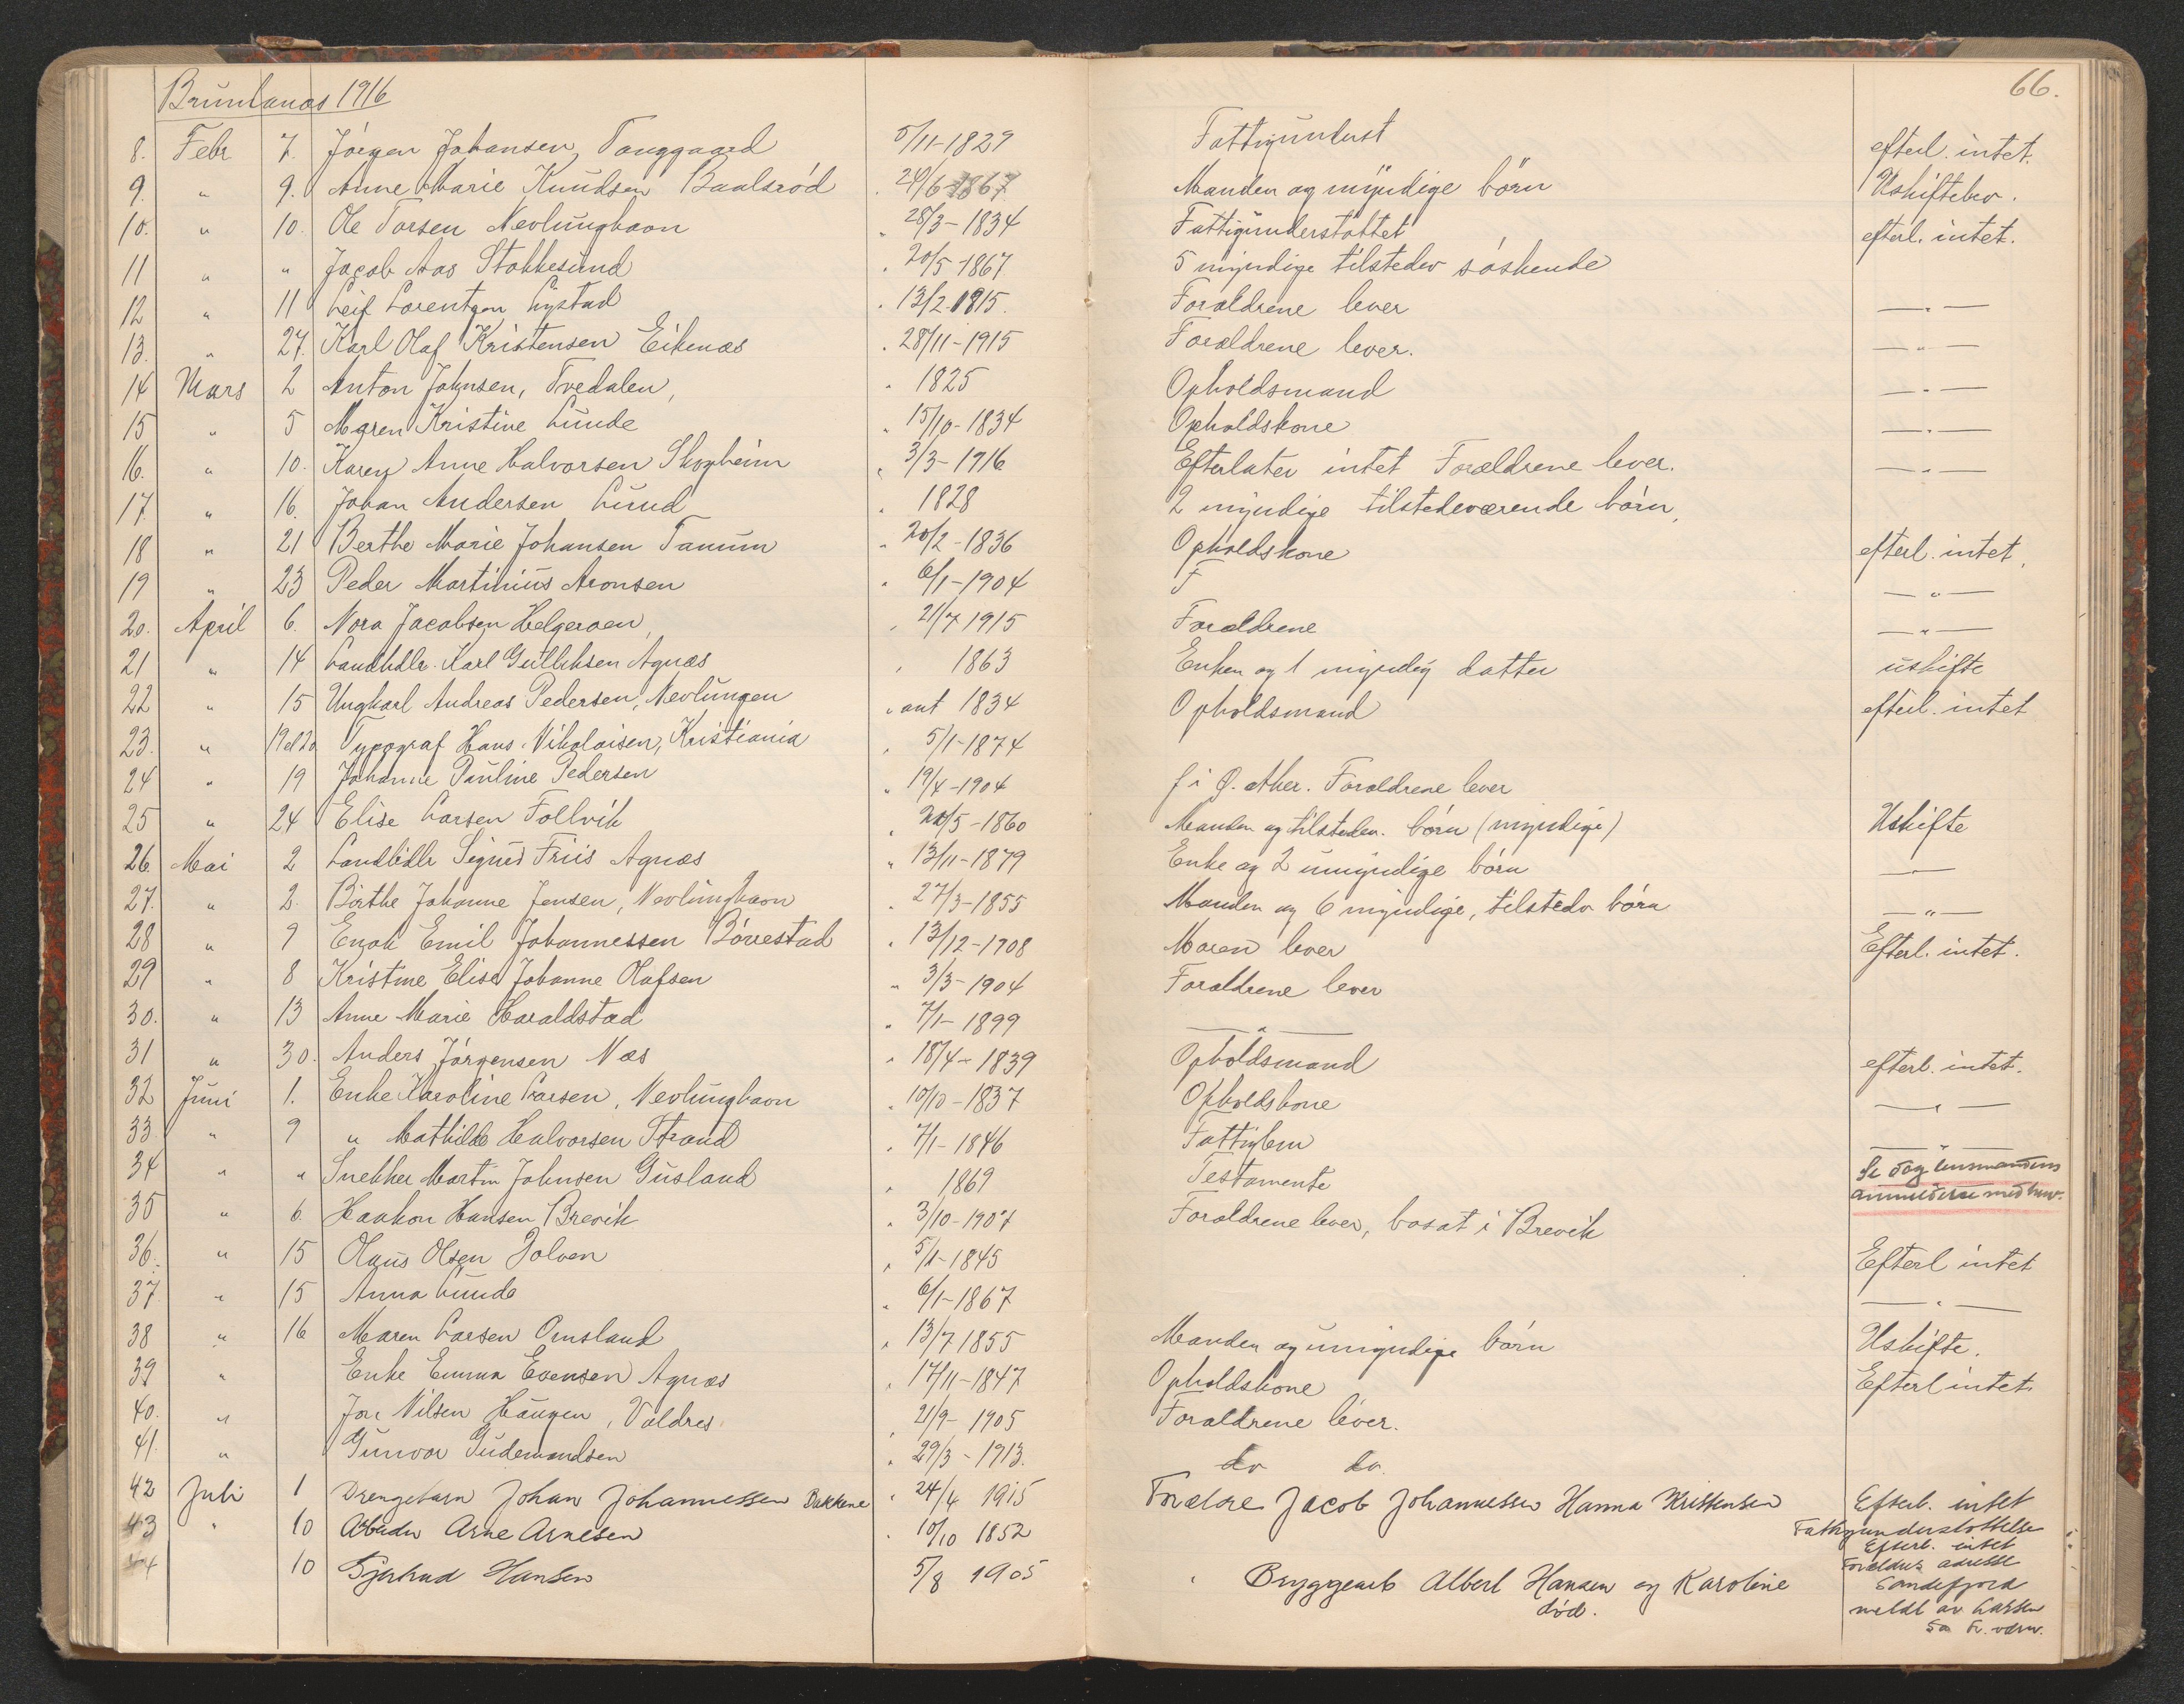 Brunlanæs 1916
66.
8. Febr 7. Jörgen Johansen, Tanggaard 5/11-1829 Fattigunderst efterl. intet.
9. " 9. Anne Marie Knudsen Baalsröd " 24/6-1867 Manden og myndige börn Uskiftebev.
10. " 10. Ole Torsen Nevlunghavn " 28/3-1834 Fattigunderstöttet efterl. intet.
11 " " Jacob Aas Stokkesund " 20/5-1867 5 myndige tilstedev söskende
12 " 11 Leif Lorentzen Lystad " 13/2-1915. Forældrene lever —"—
13. " 27. Karl Olaf Kristensen Eikenæs " 28/11-1915 Forældrene lever. —"—
14 Mars 2 Anton Johnsen, Tvedalen, " 1825 Opholdsmand —"—
15 " 5 Maren Kristine Lunde " 15/10-1834 Opholdskone —"—
16. " 10. Karen Anne Halvorsen Skogheim " 3/3-1916 Efterlater intet Forældrene lever. —"—
17. " 16. Johan Andersen Lund " 1828 2 myndige tilstedeværende börn,
18 " 21 Berthe Marie Johansen Tanum " 20/2-1836 Opholdskone efterl. intet,
19 " 23 Peder Martinius Aronsen " 6/1-1904 F —"—
20. April 6. Nora Jacobsen Helgeroen, " 21/7 1915 Forældrene —"—
21 " 14 Landhdlr. Karl Gulliksen Agnæs " 1863 Enken og 1 myndig datter uskifte
22 " 15 Ungkarl Andreas Pedersen, Nevlungen " ant 1834 Opholdsmand efterl. intet
23. " 19 el 20 Typograf Hans Nikolaisen, Kristiania " 5/1-1874
24 " 19 Johanne Pauline Pedersen " 19/4-1904 f i Ø. Aker. Forældrene lever
25 " 24 Elise Larsen Follvik " 20/5-1860 Manden og tilstedev. börn (myndige) Uskifte
26. Mai 2 Landhdlr Signus Friis Agnæs " 13/11-1879 Enke og 2 umyndige börn —"—
27. " 2. Birthe Johanne Jensen, Nevlunghavn " 27/3-1855 Manden og 6 myndige, tilstedv börn —"—
28 " 9 Enok Emil Johannessen Börrestad " 13/12-1908 Moren lever Efterl. intet.
29 " 8 Kristine Elise Johanne Olafsen " 3/3-1904 Forældrene lever
30. " 13 Anne Marie Haraldstad " 7/1-1899 —"—
31 " 30. Anders Jörgensen Næs " 18/4-1839 Opholdsmand efterl. intet.
32 Juni 1. Enke Karoline Larsen, Nevlunghavn " 10/10-1837 Opholdskone —"—
33. " 9 " Mathilde Halvorsen Strand " 7/1-1846 Fattiglem —"—
34 " " Snekker Martin Johnsen Gusland " 1869 Testamente Se dog lensmandens
anmeldelse med brev.
35 " 6. Haakon Hansen Brevik " 3/10-1907 Forældrene lever, bosat i Brevik
36. " 15 Olaus Olsen Jolven " 5/1-1845 Efterl intet
37. " 15 Anna Lunde " 6/1-1867 —"—
38 " 16 Maren Larsen Ornsland " 13/7 1855 Manden og umyndige börn Uskifte.
39. " Enke Emma Evensen Agnæs " 17/11-1847 Opholdskone Efterl intet.
40. " Jon Nilsen Haugen, Valdres. " 21/9-1905 Forældrene lever.
41. " Gunvor Gudemundsen " 29/3-1913. do do.
42 Juli 1 Drengebarn Johan Johannessen Bakkene " 24/4 1915 Forældre Jacob Johannessen Hanna Kristensen Efterl. intet
43 " 10 Arbeider Arne Arnesen " 10/10 1852 Fattigunderstöttelse
Efterl. intet
44 10 Gjertrud Hansen 5/8 1905 " Bryggearb Albert Hansen og Karoline
död.
Forældres adresse
Sandefjord
meldt av Larsen